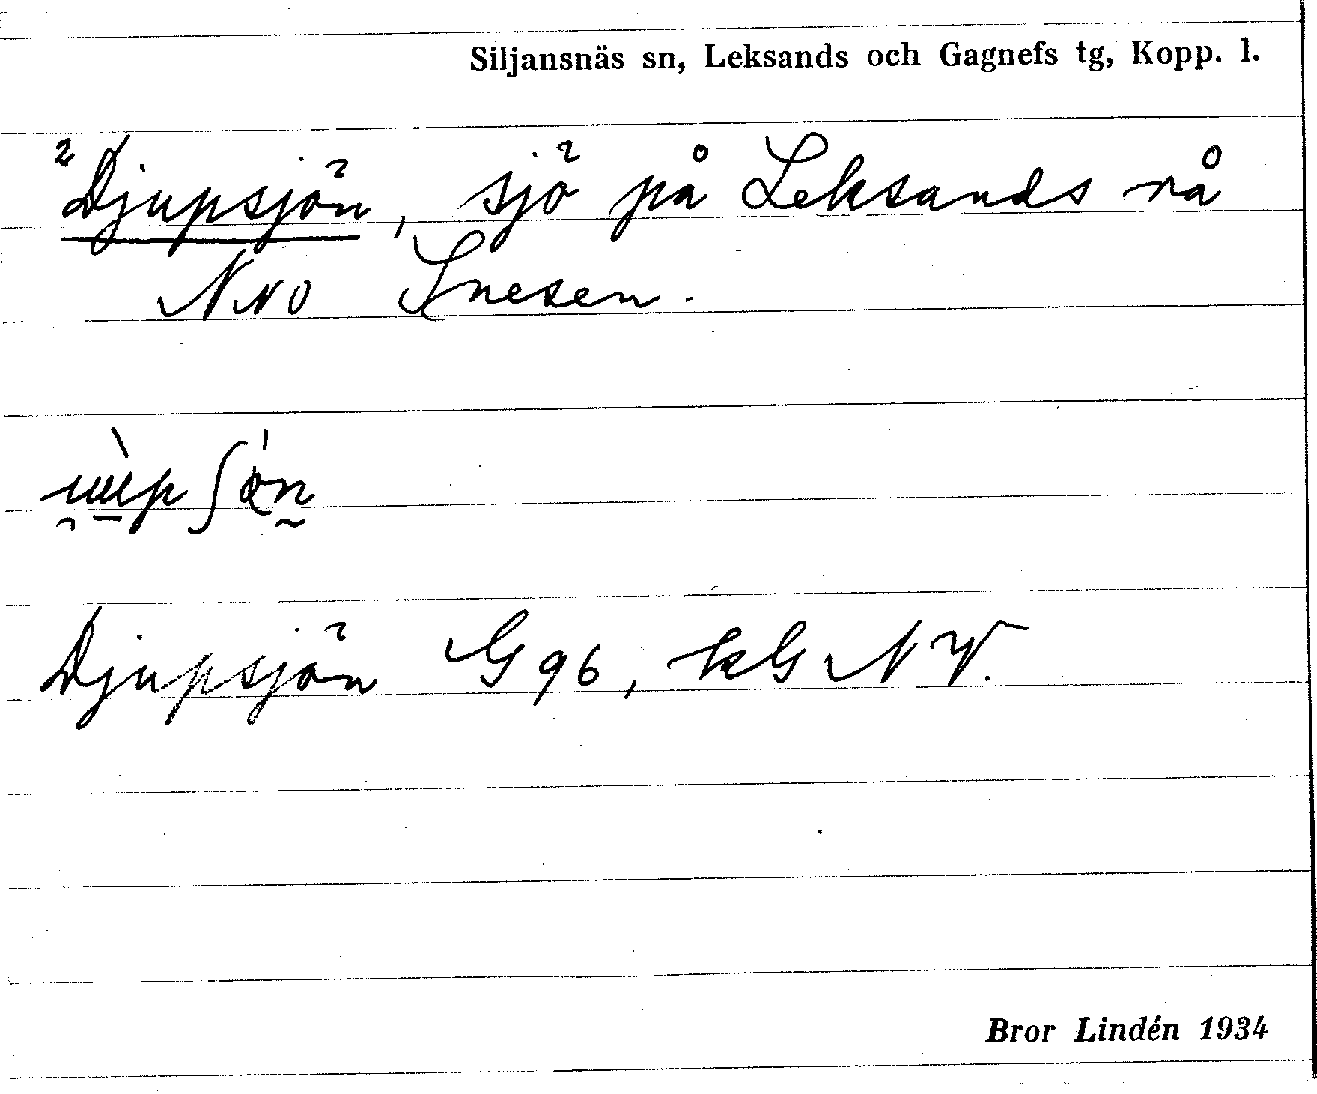 Siljansnäs sn, Leksands och Gagnefs tg, Kopp. l.
² Djupsjön, sjö på Leksands rå
NNO Snesen.
Djupsjön G 96, kG NV.
Bror Lindén 1934